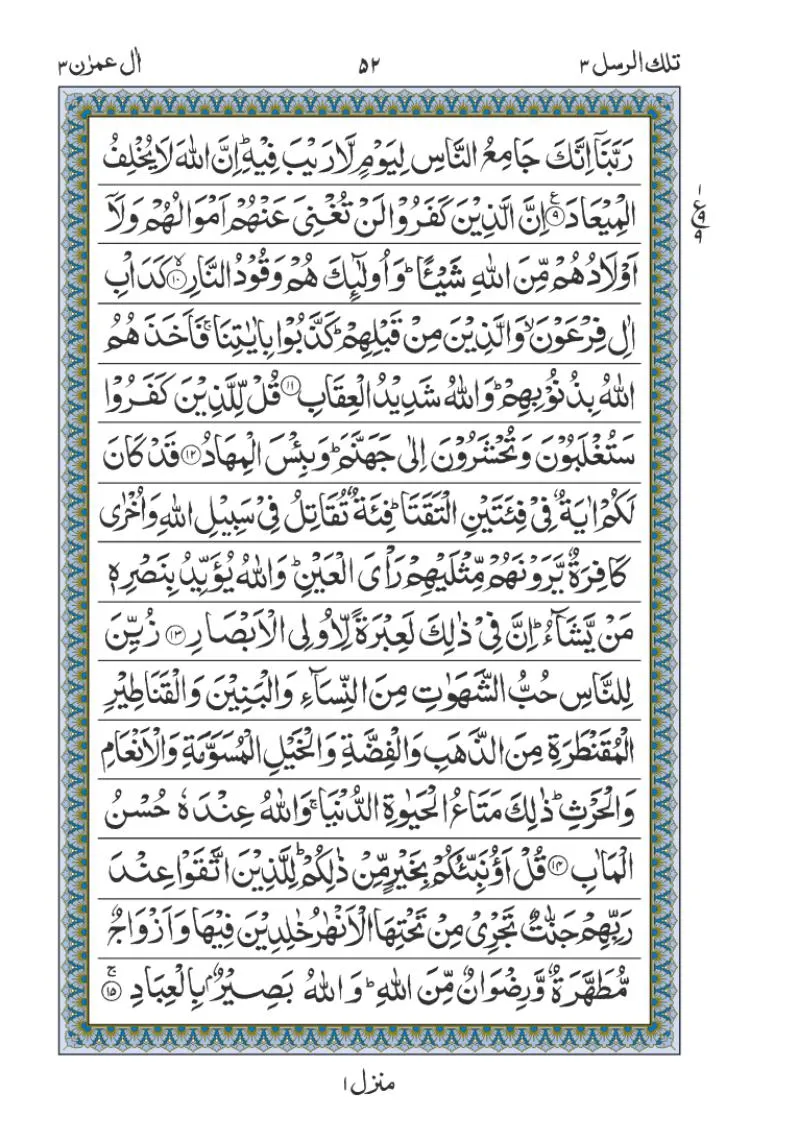 تلك الرسل ٣
٥٢
اٰل عمرٰن ٣
رَبَّنَاۤ اِنَّكَ جَامِعُ النَّاسِ لِيَوْمٍ لَّا رَيْبَ فِيْهِؕ اِنَّ اللّٰهَ لَا يُخْلِفُ
الْمِيْعَادَ ۹ۧ اِنَّ الَّذِيْنَ كَفَرُوْا لَنْ تُغْنِىَ عَنْهُمْ اَمْوَالُهُمْ وَلَاۤ
اَوْلَادُهُمْ مِّنَ اللّٰهِ شَيْـًٔاؕ وَاُولٰٓئِكَ هُمْ وَقُوْدُ النَّارِۙ ۱۰ كَدَاْبِ
اٰلِ فِرْعَوْنَۙ وَالَّذِيْنَ مِنْ قَبْلِهِمْؕ كَذَّبُوْا بِاٰيٰتِنَاۚ فَاَخَذَهُمُ
اللّٰهُ بِذُنُوْبِهِمْؕ وَاللّٰهُ شَدِيْدُ الْعِقَابِ ۱۱ قُلْ لِّلَّذِيْنَ كَفَرُوْا
سَتُغْلَبُوْنَ وَتُحْشَرُوْنَ اِلٰى جَهَنَّمَؕ وَبِئْسَ الْمِهَادُ ۱۲ قَدْ كَانَ
لَكُمْ اٰيَةٌ فِىْ فِئَتَيْنِ الْتَقَتَاؕ فِئَةٌ تُقَاتِلُ فِىْ سَبِيْلِ اللّٰهِ وَاُخْرٰى
كَافِرَةٌ يَّرَوْنَهُمْ مِّثْلَيْهِمْ رَاْىَ الْعَيْنِؕ وَاللّٰهُ يُؤَيِّدُ بِنَصْرِهٖ
مَنْ يَّشَآءُؕ اِنَّ فِىْ ذٰلِكَ لَعِبْرَةً لِّاُولِى الْاَبْصَارِ ۱۳ زُيِّنَ
لِلنَّاسِ حُبُّ الشَّهَوٰتِ مِنَ النِّسَآءِ وَالْبَنِيْنَ وَالْقَنَاطِيْرِ
الْمُقَنْطَرَةِ مِنَ الذَّهَبِ وَالْفِضَّةِ وَالْخَيْلِ الْمُسَوَّمَةِ وَالْاَنْعَامِ
وَالْحَرْثِؕ ذٰلِكَ مَتَاعُ الْحَيٰوةِ الدُّنْيَاۚ وَاللّٰهُ عِنْدَهٗ حُسْنُ
الْمَاٰبِ ۱۴ قُلْ اَؤُنَبِّئُكُمْ بِخَيْرٍ مِّنْ ذٰلِكُمْؕ لِلَّذِيْنَ اتَّقَوْا عِنْدَ
رَبِّهِمْ جَنّٰتٌ تَجْرِىْ مِنْ تَحْتِهَا الْاَنْهٰرُ خٰلِدِيْنَ فِيْهَا وَاَزْوَاجٌ
مُّطَهَّرَةٌ وَّرِضْوَانٌ مِّنَ اللّٰهِؕ وَاللّٰهُ بَصِيْرٌۢ بِالْعِبَادِۚ ۱۵
۱
ع
۹
۹
منزل ۱